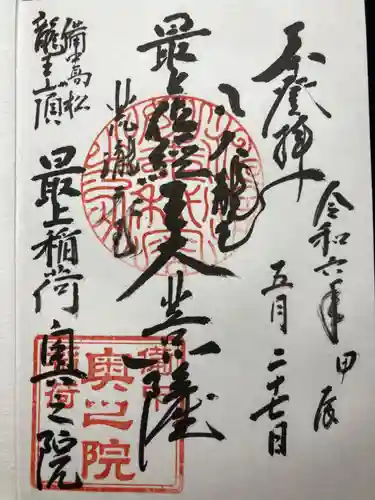 奉登拝
令和六年 甲辰
五月二十七日
八大龍王
最上位経王大菩薩
備中高松
龍王山頂
最上稲荷奥之院
奥之院